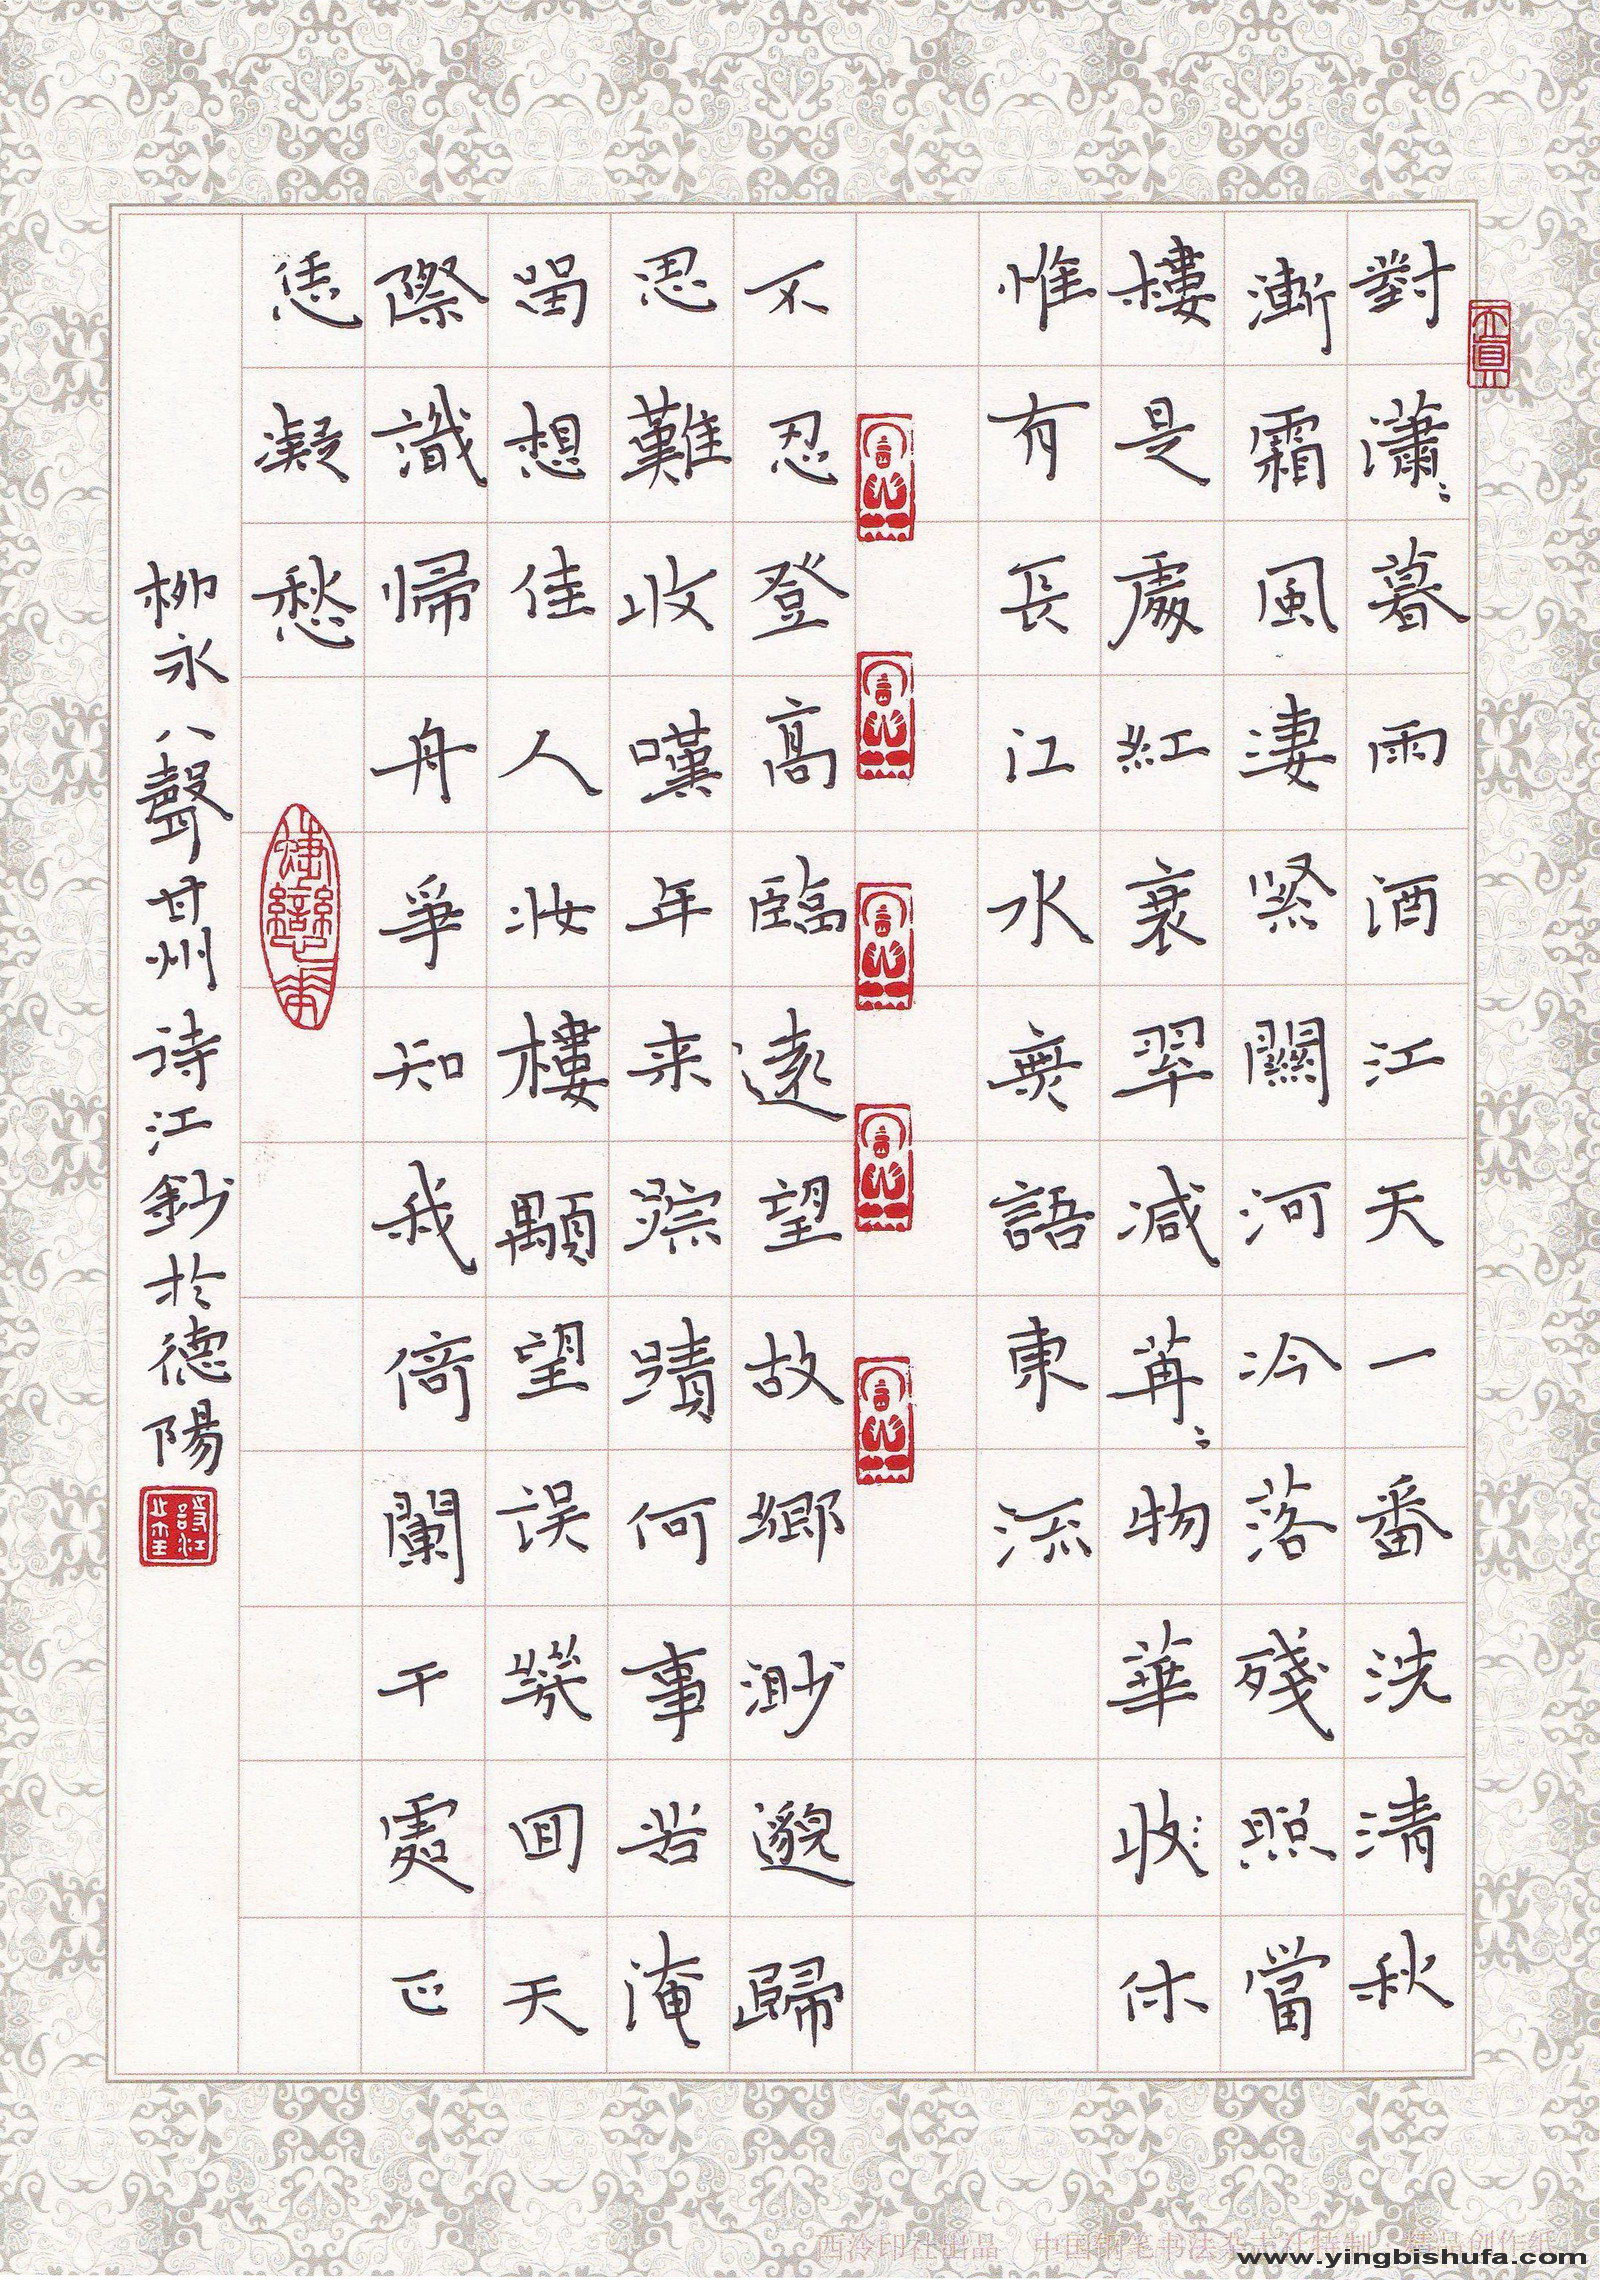 對瀟〻暮雨酒江天一番洗清秋
漸霜風淒緊關河泠落殘照當
樓是處紅衰翠減苒〻物華收休
惟有長江水無語東流
不忍登高臨遠望故鄉渺邈歸
思難收嘆年来蹤蹟何事苦淹
留想佳人妝樓顒望誤幾回天
際識歸舟爭知我倚闌干處正
恁凝愁
柳永八聲甘州詩江鈔於德陽
西泠印社出品 中国钢笔书法杂志社特制 精品创作纸
www.yingbishufa.com